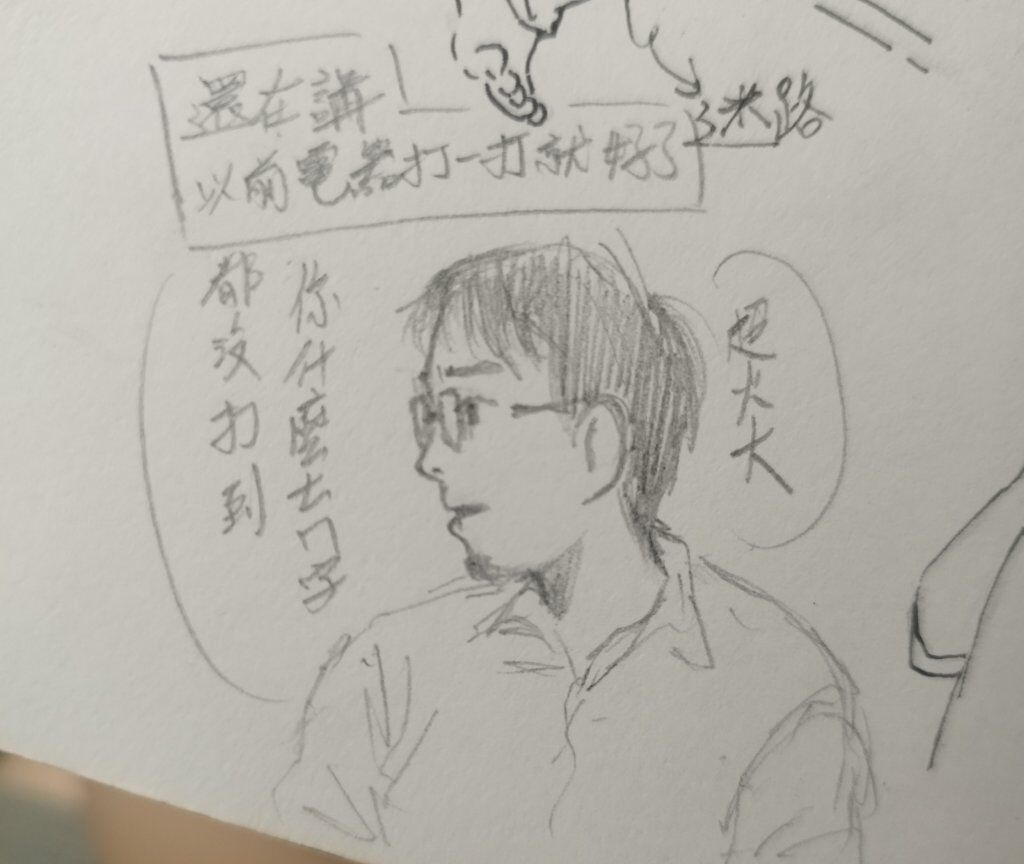 還在講
以前電器打一打就好了
迷路
你什麼
都沒打到
超火大